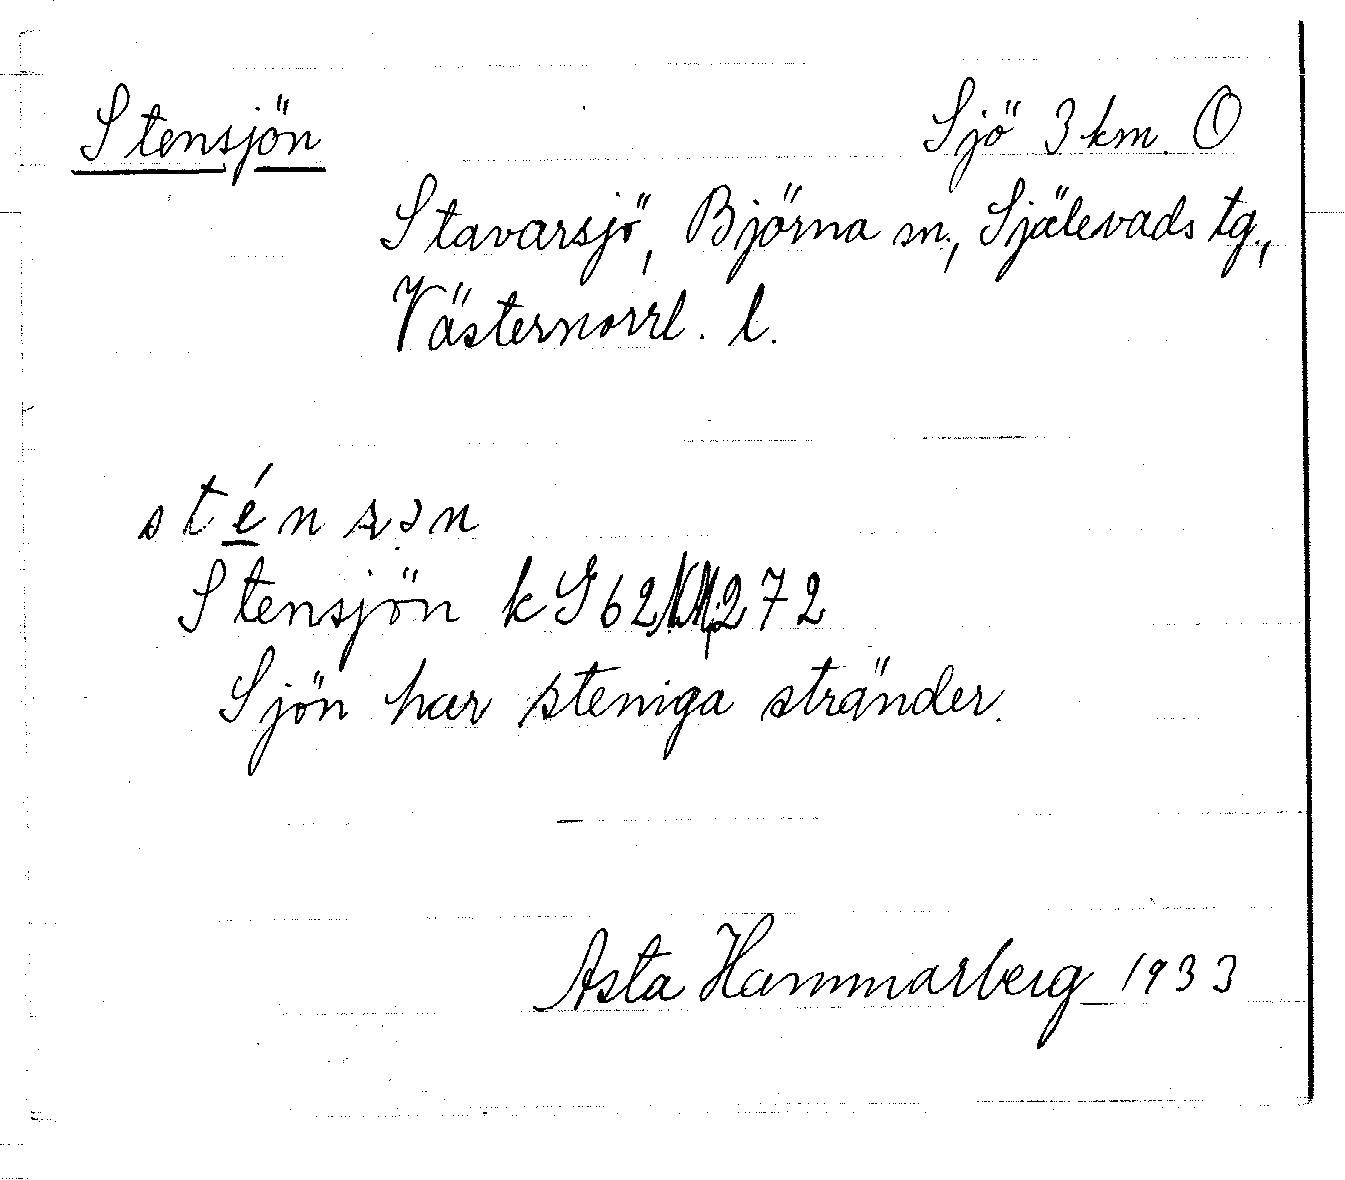 Stensjön Sjö 3 km. O
Stavarsjö, Björna sn., Själevads tg.,
Västernorrl. l.
sténsən
Stensjön kG62 272
Sjön har steniga stränder.
Asta Hammarberg 1933